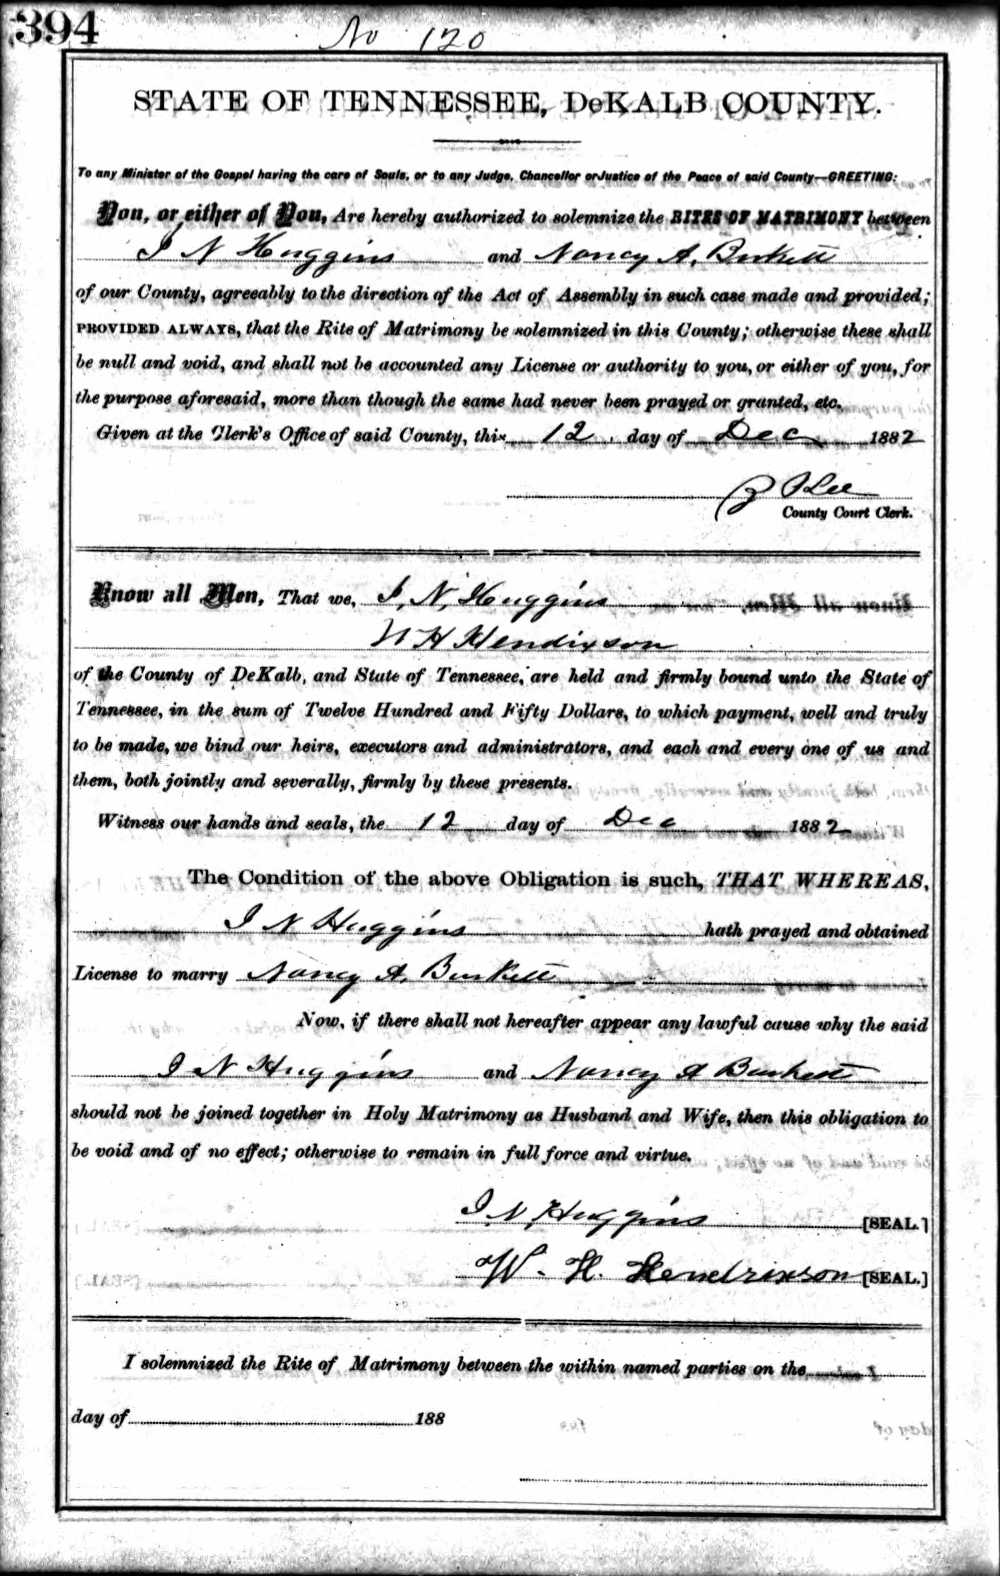 394
No 120
STATE OF TENNESSEE, DeKALB COUNTY.
To any Minister of the Gospel having the care of Souls, or to any Judge, Chancellor or Justice of the Peace of said County—GREETING:
You, or either of You, Are hereby authorized to solemnize the RITES OF MATRIMONY between
I N Huggins and Nancy A. Burkett
of our County, agreeably to the direction of the Act of Assembly in such case made and provided;
PROVIDED ALWAYS, that the Rite of Matrimony be solemnized in this County; otherwise these shall
be null and void, and shall not be accounted any License or authority to you, or either of you, for
the purpose aforesaid, more than though the same had never been prayed or granted, etc.
Given at the Clerk's Office of said County, this 12 day of Dec 1882
Z P Lee
County Court Clerk.
Know all Men, That we, I. N. Huggins
W H Hendixson
of the County of DeKalb, and State of Tennessee, are held and firmly bound unto the State of
Tennessee, in the sum of Twelve Hundred and Fifty Dollars, to which payment, well and truly
to be made, we bind our heirs, executors and administrators, and each and every one of us and
them, both jointly and severally, firmly by these presents.
Witness our hands and seals, the 12 day of Dec 1882
The Condition of the above Obligation is such, THAT WHEREAS,
I N Huggins hath prayed and obtained
License to marry Nancy A. Burkett
Now, if there shall not hereafter appear any lawful cause why the said
I N Huggins and Nancy A Burkett
should not be joined together in Holy Matrimony as Husband and Wife, then this obligation to
be void and of no effect; otherwise to remain in full force and virtue.
I. N. Huggins [SEAL.]
W. H. Hendrixson [SEAL.]
I solemnized the Rite of Matrimony between the within named parties on the
day of 188